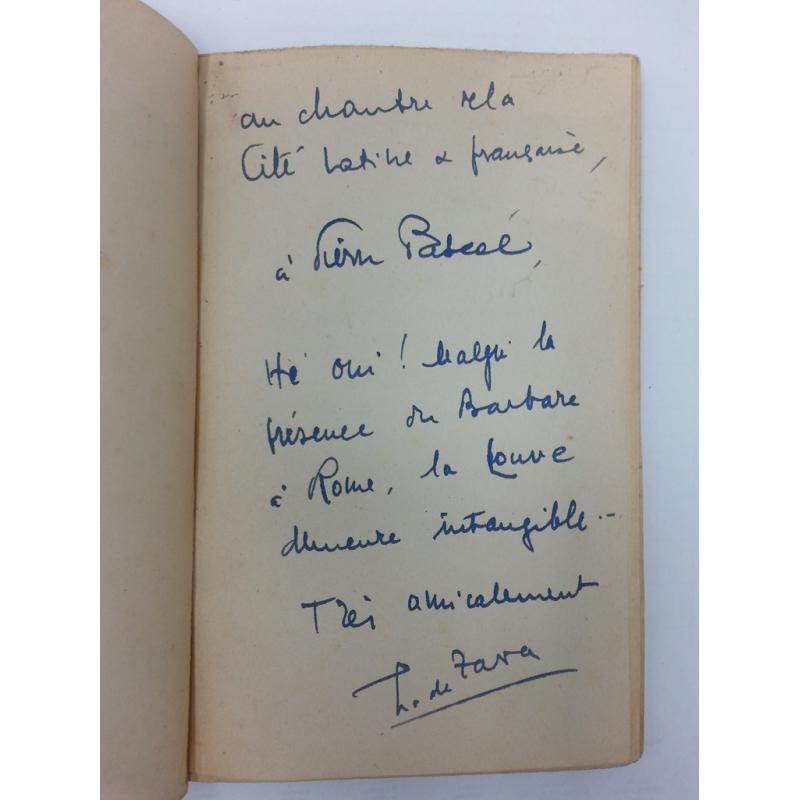 au chantre de la
Cité Latine & française,
à Pierre Pascal,
Hé oui ! Malgré la
présence du Barbare
à Rome, la Louve
demeure intangible.-
Très amicalement
de Zara